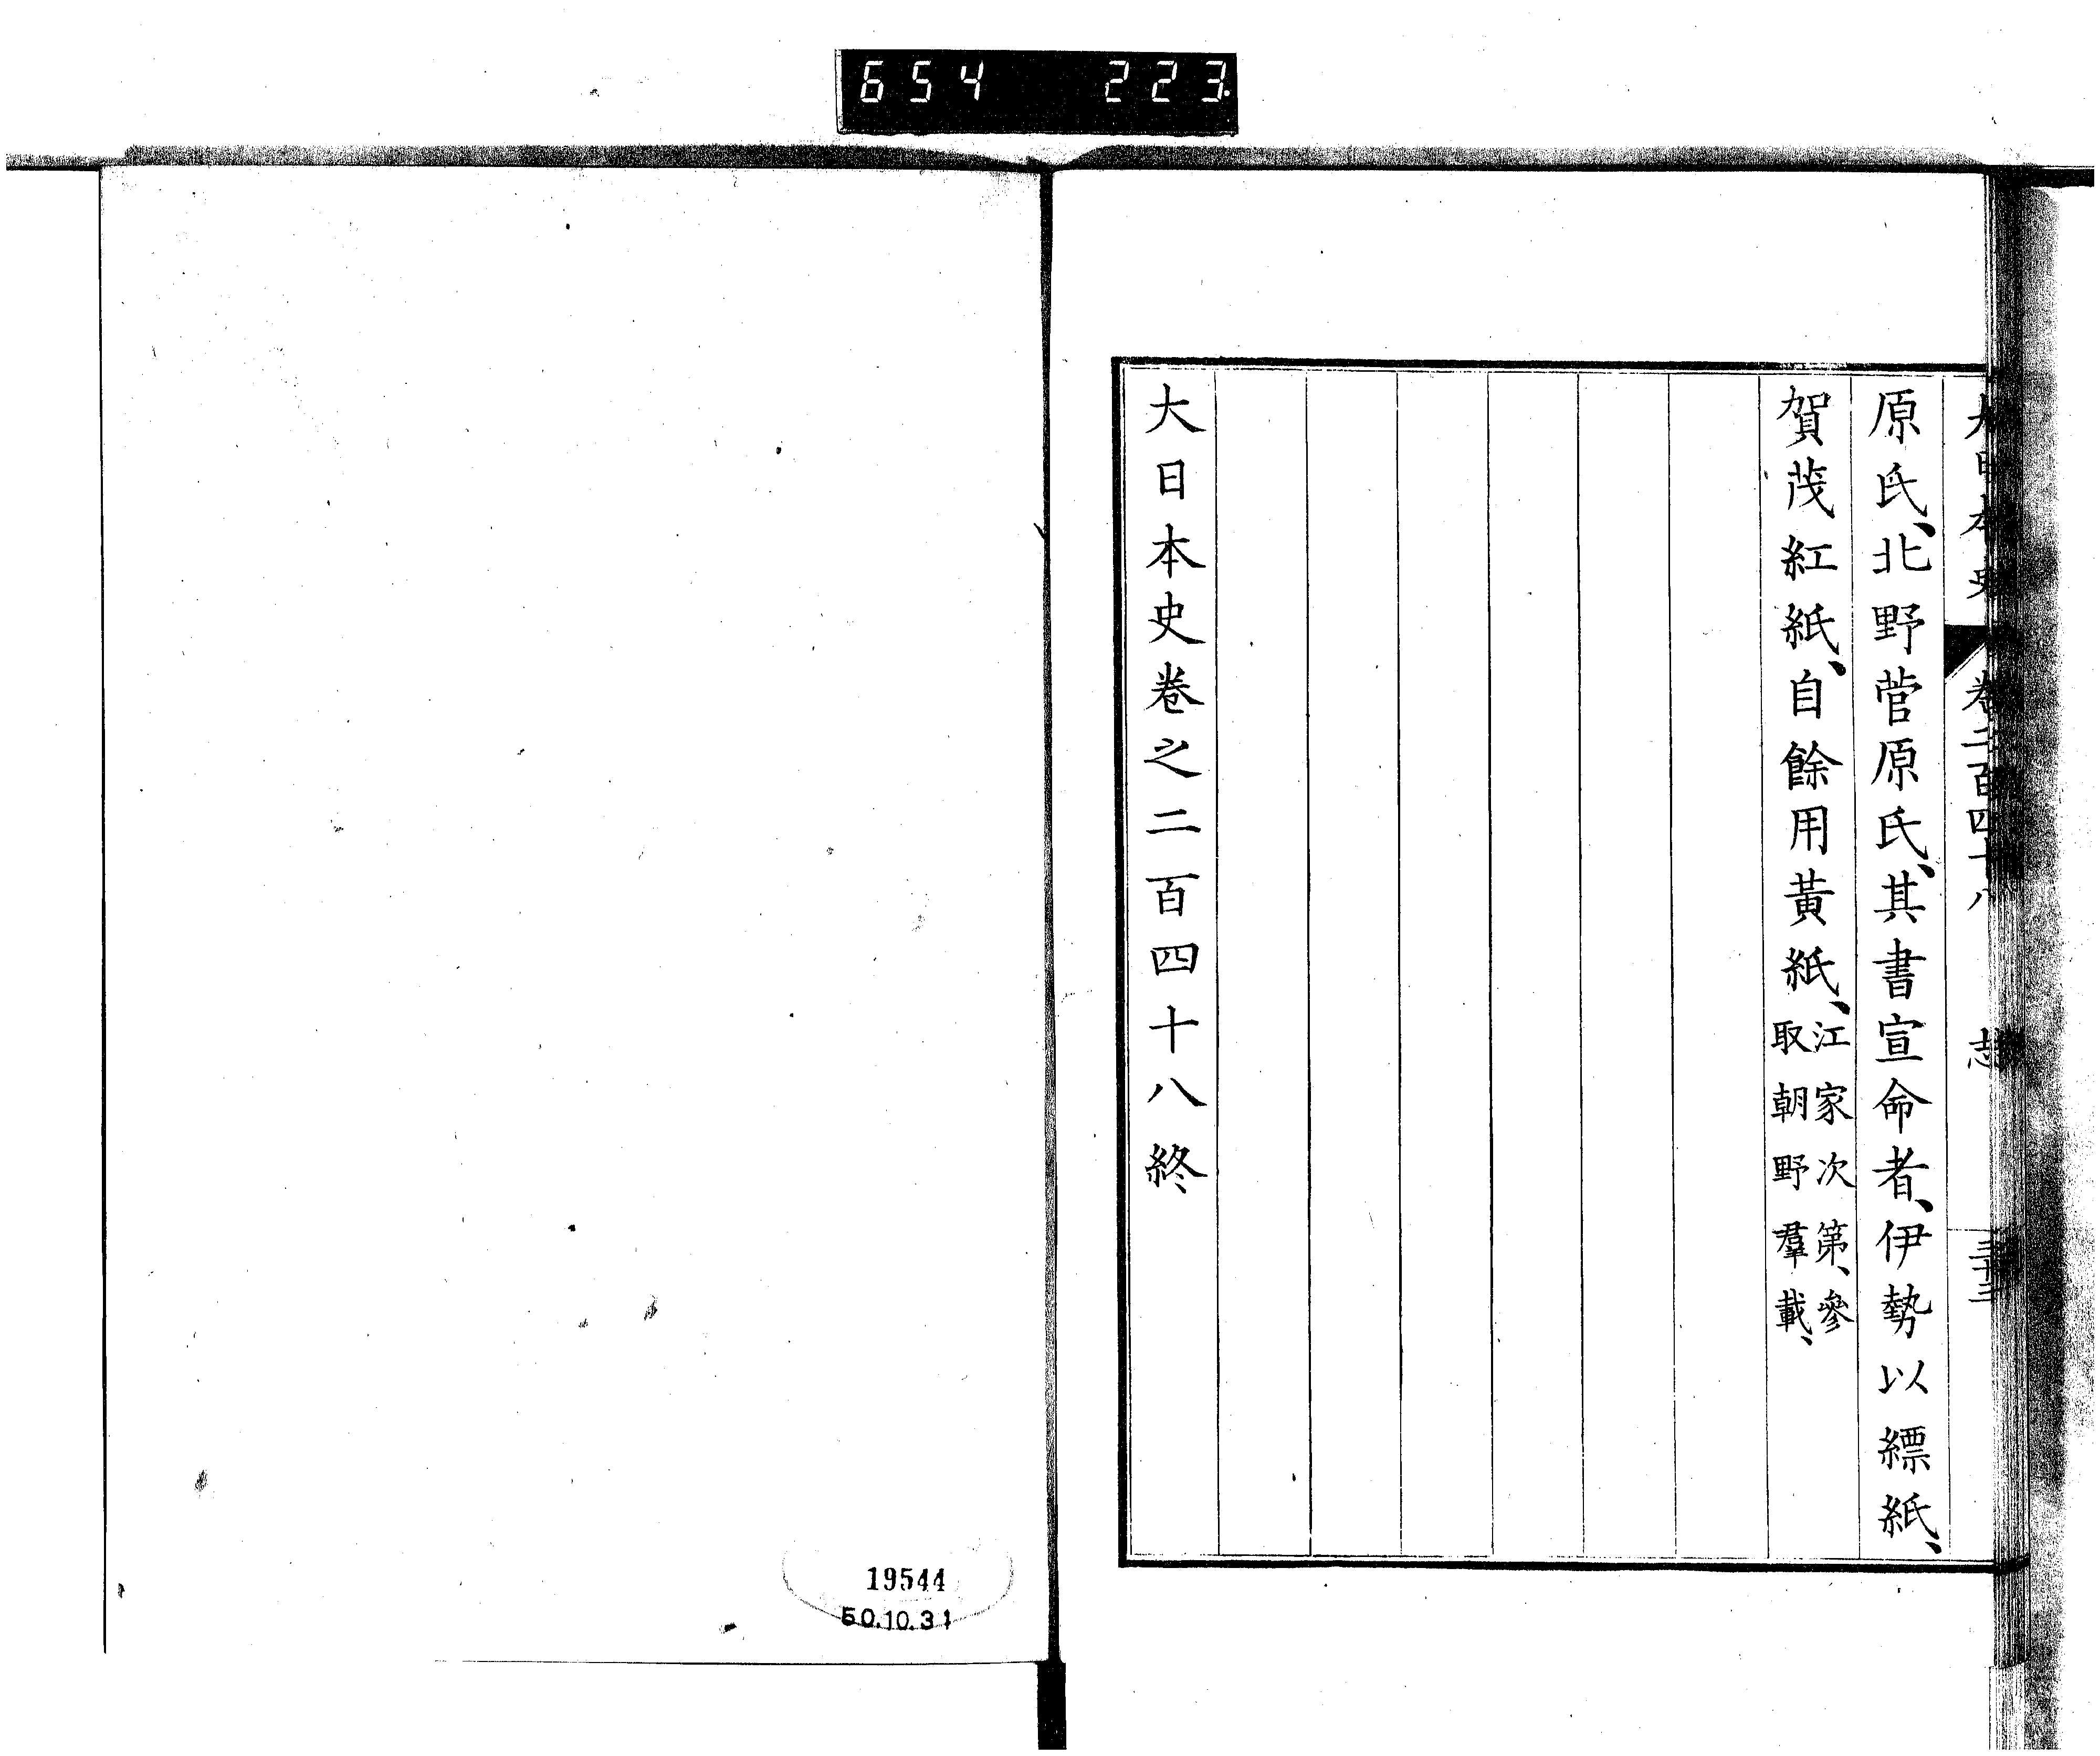 654 223
大日本史 卷二百四十八 志
原氏、北野菅原氏、其書宣命者、伊勢以縹紙、
賀茂紅紙、自餘用黃紙、江家次第、參
取朝野羣載、
大日本史卷之二百四十八終
19544
50.10.31